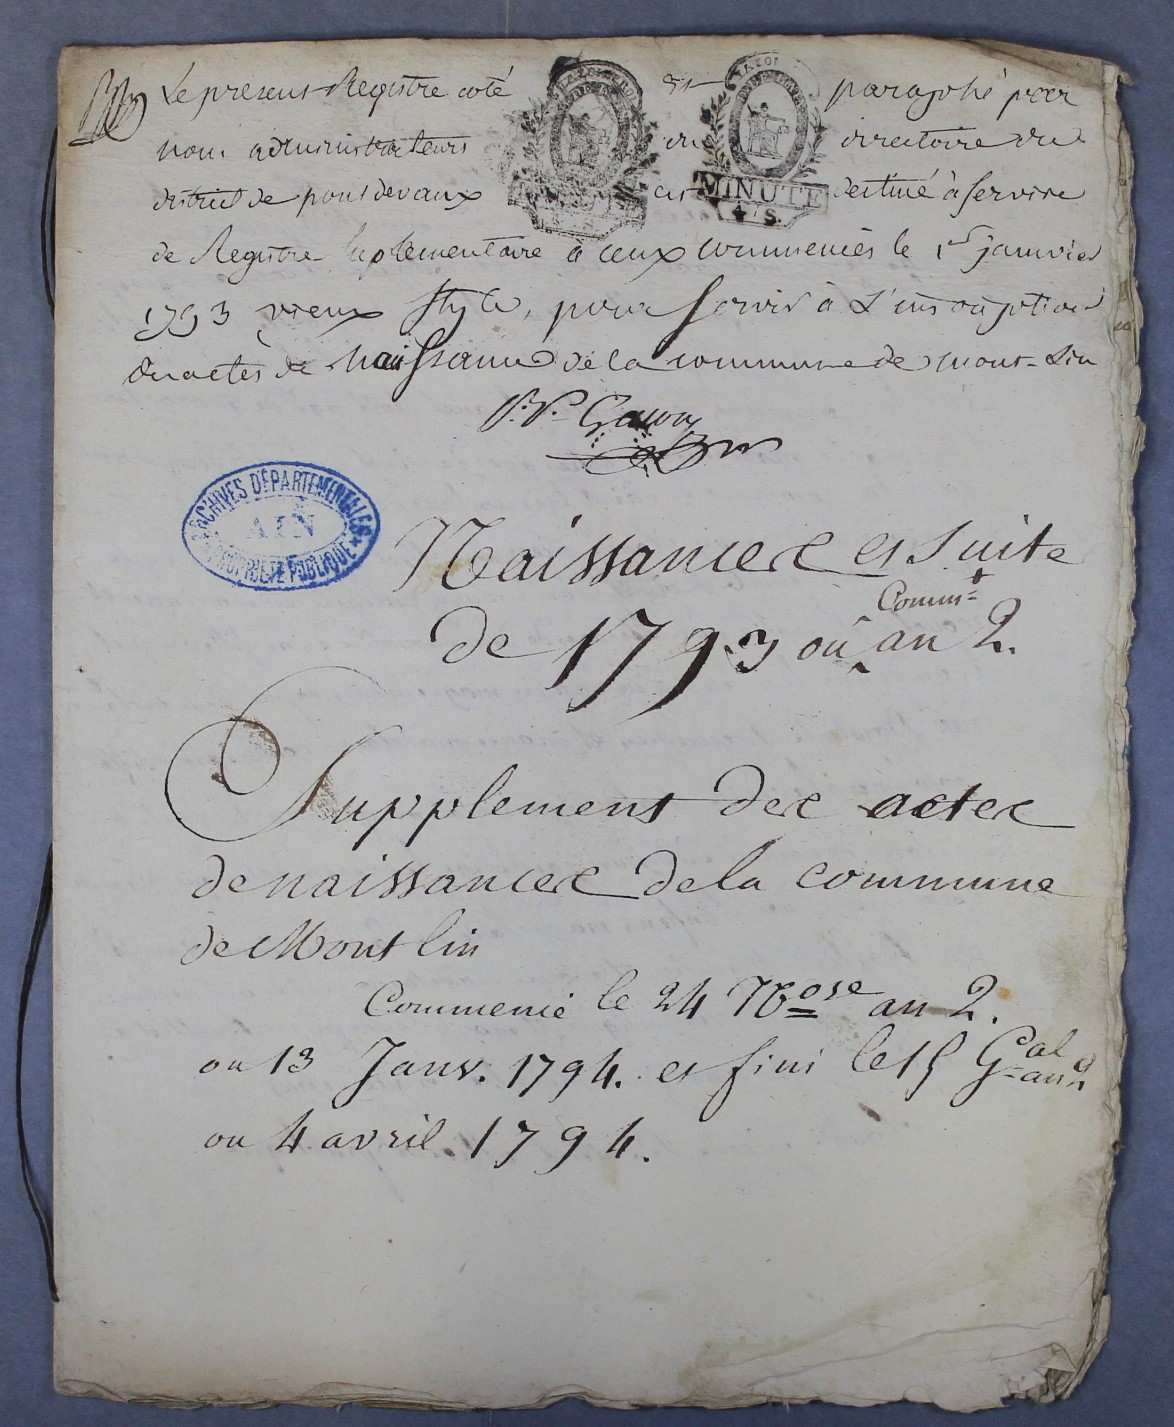 Le present Registre coté et paraphé par
nous administrateurs du directoire du
district de pontdevaux est destiné à servire
de Registre suplementaire a ceux commencés le 1er janvier
1793 vieux style, pour servir à L'inscription
des actes de Naissance de la commune de mont-Lin
MINUTE
4 S.
ARCHIVES DÉPARTEMENTALES
AIN
PROPRIÉTÉ PUBLIQUE
Naissances et suite
de 1793 oû an 2.
Comm=t
Supplement des actes
de naissances de la commune
de Mont lin
Commencé le 24 Nose an 2.
ou 13 Janv. 1794. et fini le 15 Gal an 2
ou 4 avril 1794.